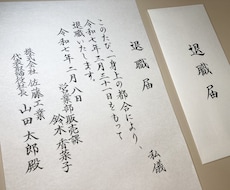 退職届
私儀
このたび、一身上の都合により、
令和七年三月三十一日をもって
退職いたします。
令和七年二月八日
営業部販売課
鈴木香菜子
株式会社佐藤工業
代表取締役社長 山田太郎殿
退職届